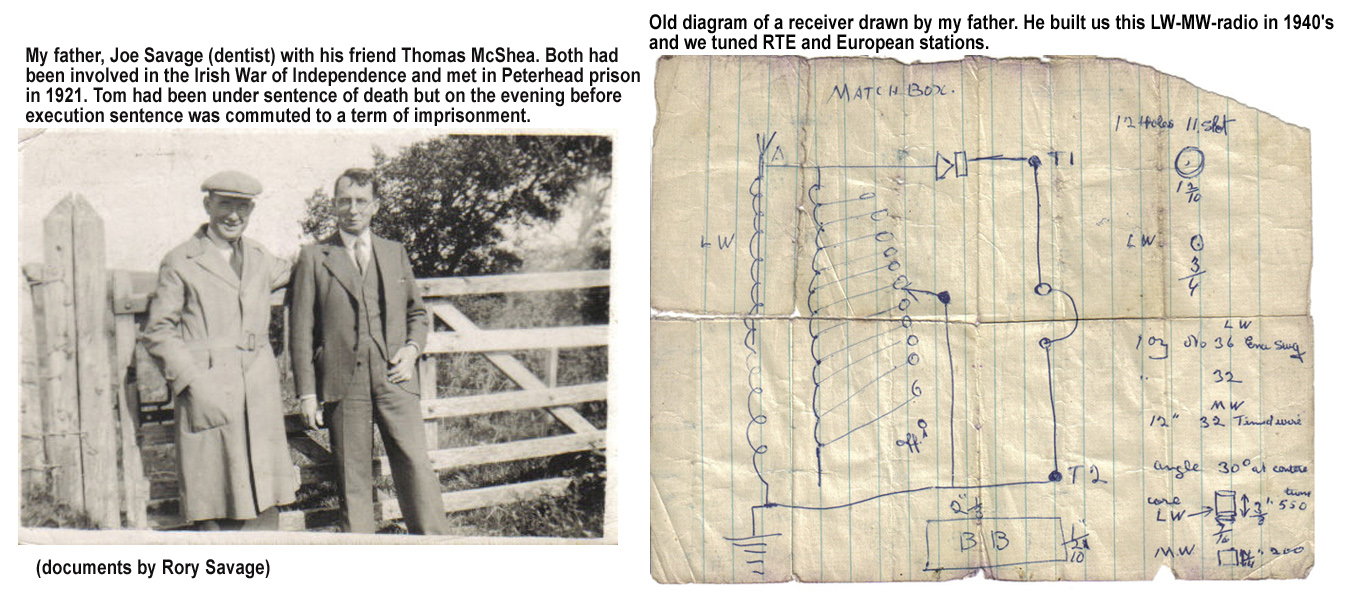 My father, Joe Savage (dentist) with his friend Thomas McShea. Both had
been involved in the Irish War of Independence and met in Peterhead prison
in 1921. Tom had been under sentence of death but on the evening before
execution sentence was commuted to a term of imprisonment.
(documents by Rory Savage)
Old diagram of a receiver drawn by my father. He built us this LW-MW-radio in 1940's
and we tuned RTE and European stations.
MATCH BOX.
12 Holes 11 slot
A
T1
1 2/10
LW
LW
3/4
LW
1 oz No 36 Ena Swg
" 32
MW
12" 32 Tinned wire
off
angle 30° at centre
T2
core
LW
turns
550
2"
BB
MW
200